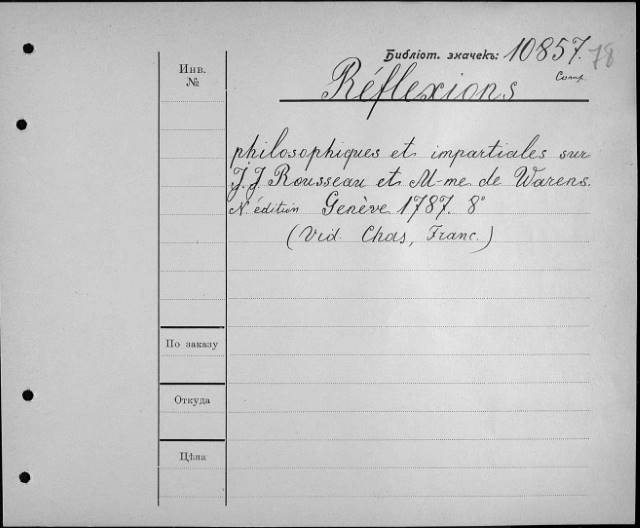 Библіот. значекъ: 10857. 78
Comp
Инв.
№
Réflexions
philosophiques et impartiales sur
J. J Rousseau et M-me de Warens.
N. édition Genève 1787. 8°
(Vid. Chas, Franc.)
По заказу
Откуда
Цѣна